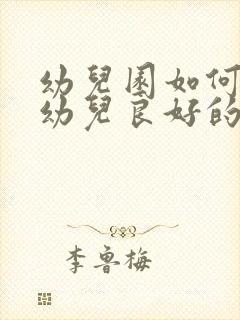 幼兒園如何
幼兒良好的
李魯梅